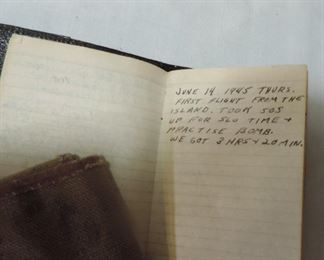 JUNE 14 1945 THURS.
FIRST FLIGHT FROM THE
ISLAND. TOOK 505
UP FOR SLO TIME +
PRACTISE BOMB.
WE GOT 3 HRS + 20 MIN.